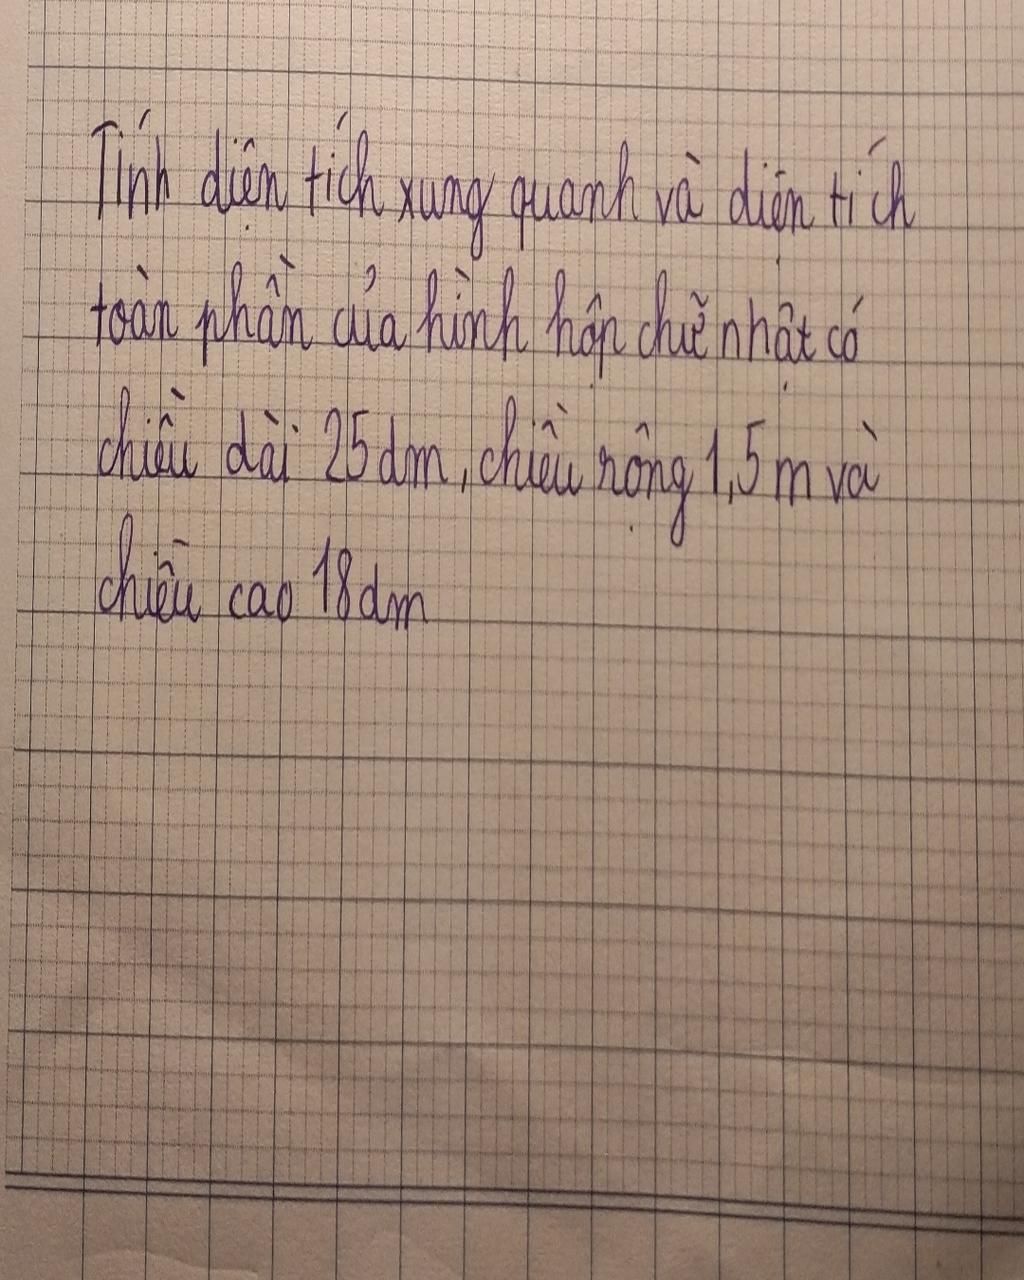 Tính diện tích xung quanh và diện tích
toàn phần của hình hộp chữ nhật có
chiều dài 25dm, chiều rộng 1,5m và
chiều cao 18dm